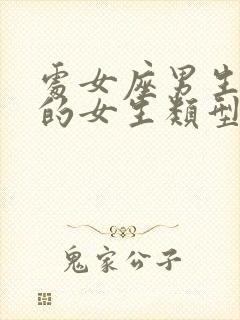 處女座男生
的女生類型
鬼家公子